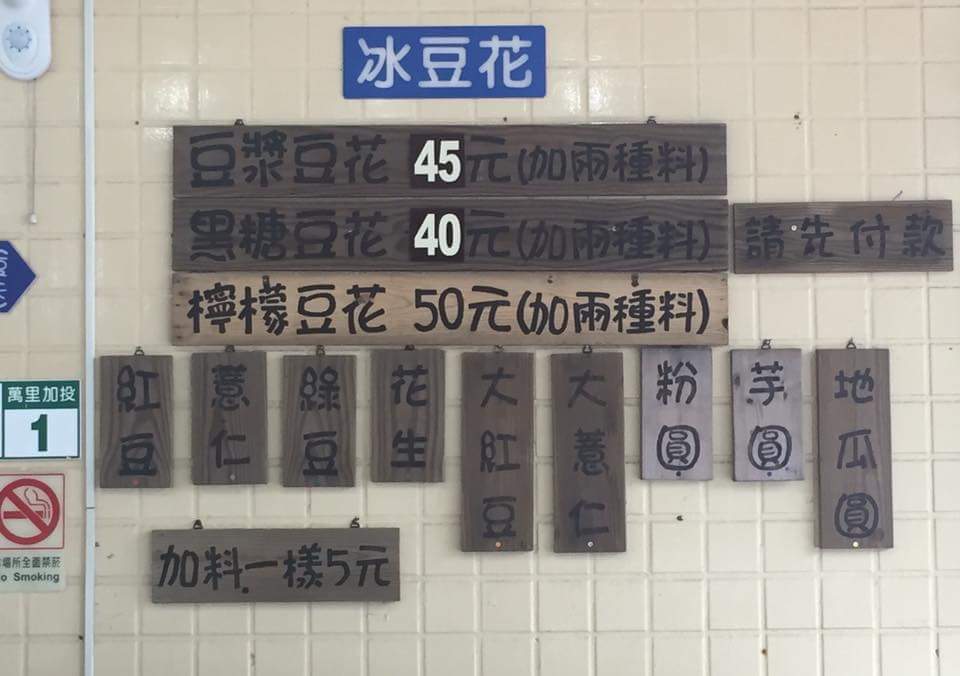 冰豆花
豆漿豆花 45元(加兩種料)
黑糖豆花 40元(加兩種料)
請先付款
檸檬豆花 50元(加兩種料)
紅豆
薏仁
綠豆
花生
大紅豆
大薏仁
粉圓
芋圓
地瓜圓
加料一樣5元
萬里加投
1
場所全面禁菸
No Smoking